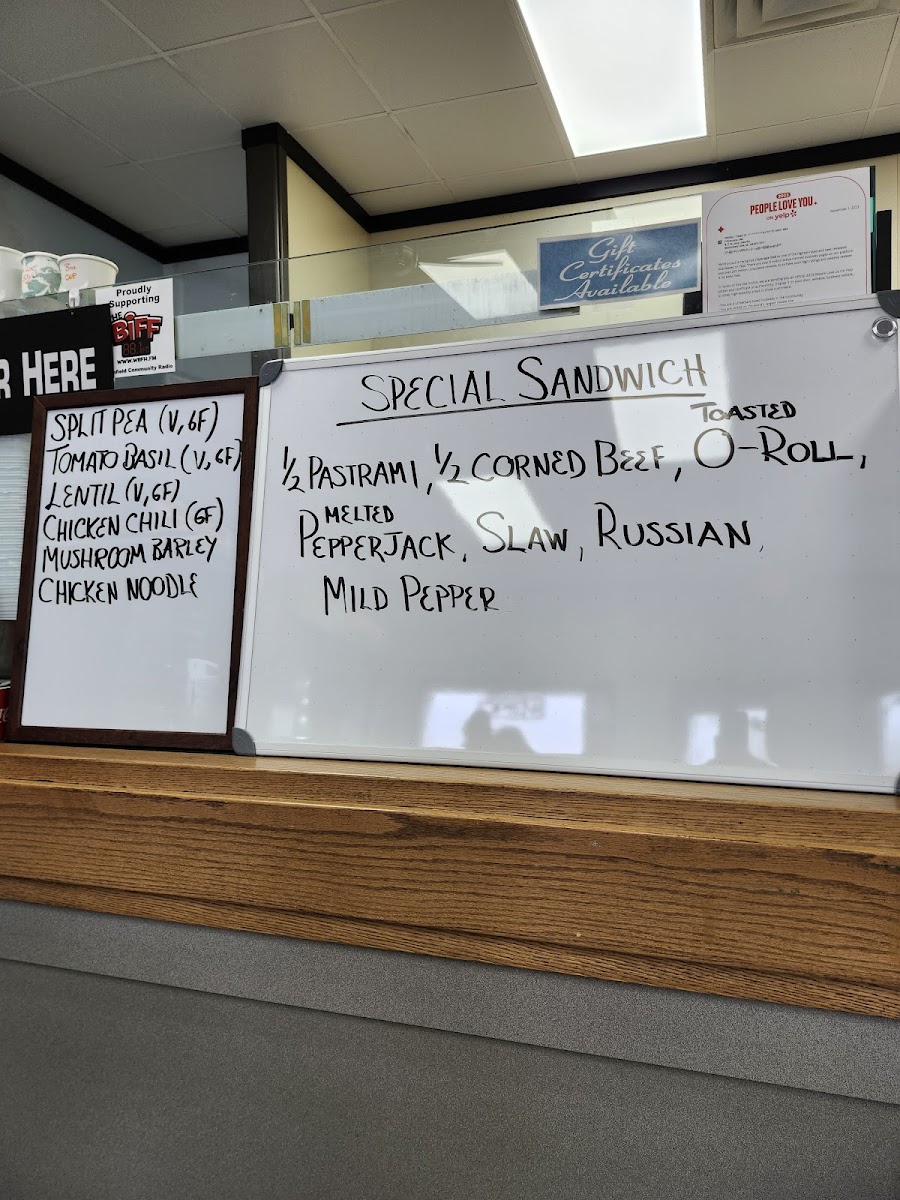 Gift
Certificates
Available
PEOPLE LOVE YOU
ON yelp
Proudly
Supporting
THE
BIFF
88.1
WWW.WBFH.FM
field Community Radio
R HERE
SPLIT PEA (V, GF)
TOMATO BASIL (V, GF)
LENTIL (V, GF)
CHICKEN CHILI (GF)
MUSHROOM BARLEY
CHICKEN NOODLE
SPECIAL SANDWICH
TOASTED
1/2 PASTRAMI, 1/2 CORNED BEEF, O-ROLL,
MELTED
PEPPERJACK, SLAW, RUSSIAN,
MILD PEPPER